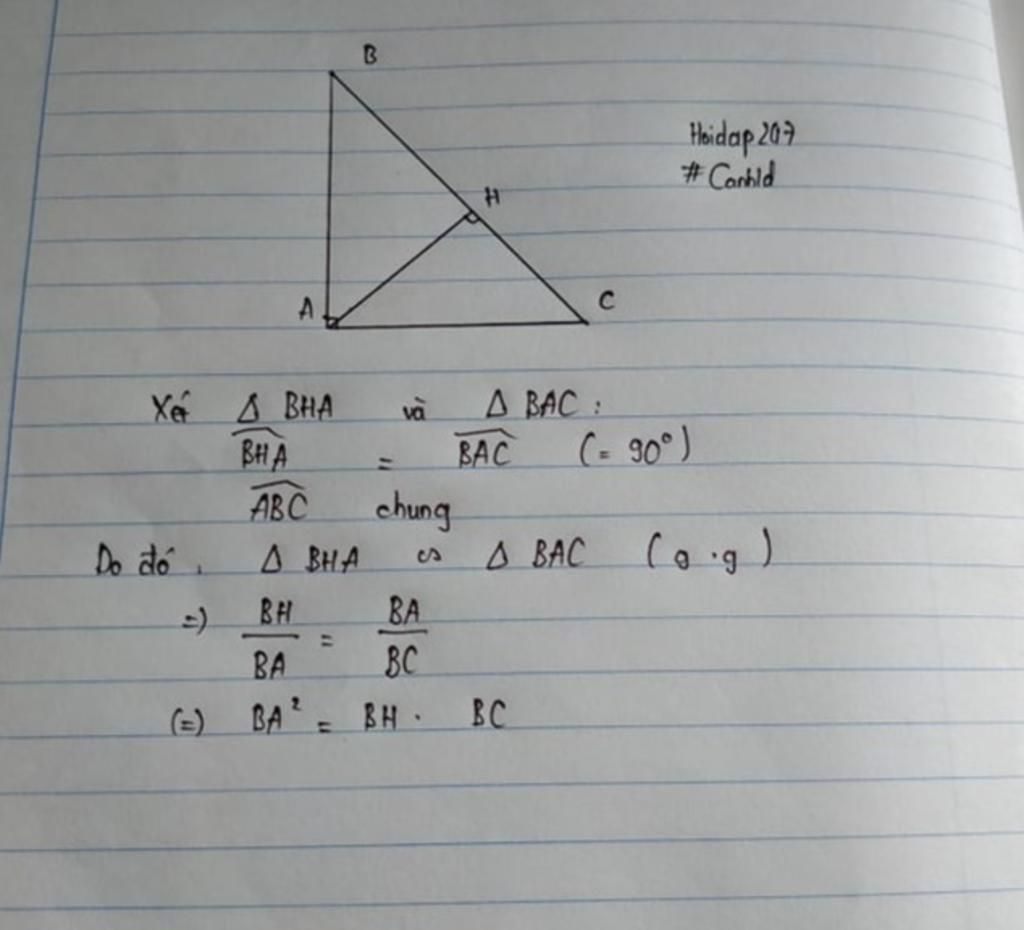 B
H
A
C
Hoidap247
#Canhld
Xét Δ BHA và Δ BAC :
BHA = BAC (= 90°)
ABC chung
Do đó, Δ BHA ∽ Δ BAC (g.g)
=) BH/BA = BA/BC
(=) BA² = BH . BC